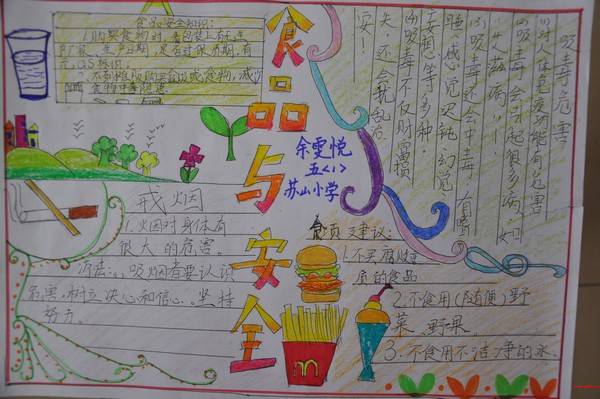 食品安全知识:
1.购买食物时,看包装上有无
厂家、生产日期,是否过保质期,有
无QS标识。
2.不到
食物中毒
食品与安全
余雯悦
五<1>
苏山小学
吸毒危害
(1)对人体免疫功能有危害
(2)吸毒会引起很多病,如
"艾滋病"!
(3)吸毒还会中毒,有嗜
睡感觉迟钝、幻觉
妄想等多种
(4)吸毒不仅财富损
失,还会扰乱治
安!
戒烟
1.火因对身体有
很大的危害。
办法:吸烟者要认识
危害,树立决心和信心。坚持
努力。
食品建议:
1.不买腐败变
质的食品
2.不食用(随便)野
菜、野果。
3.不食用不洁净的水